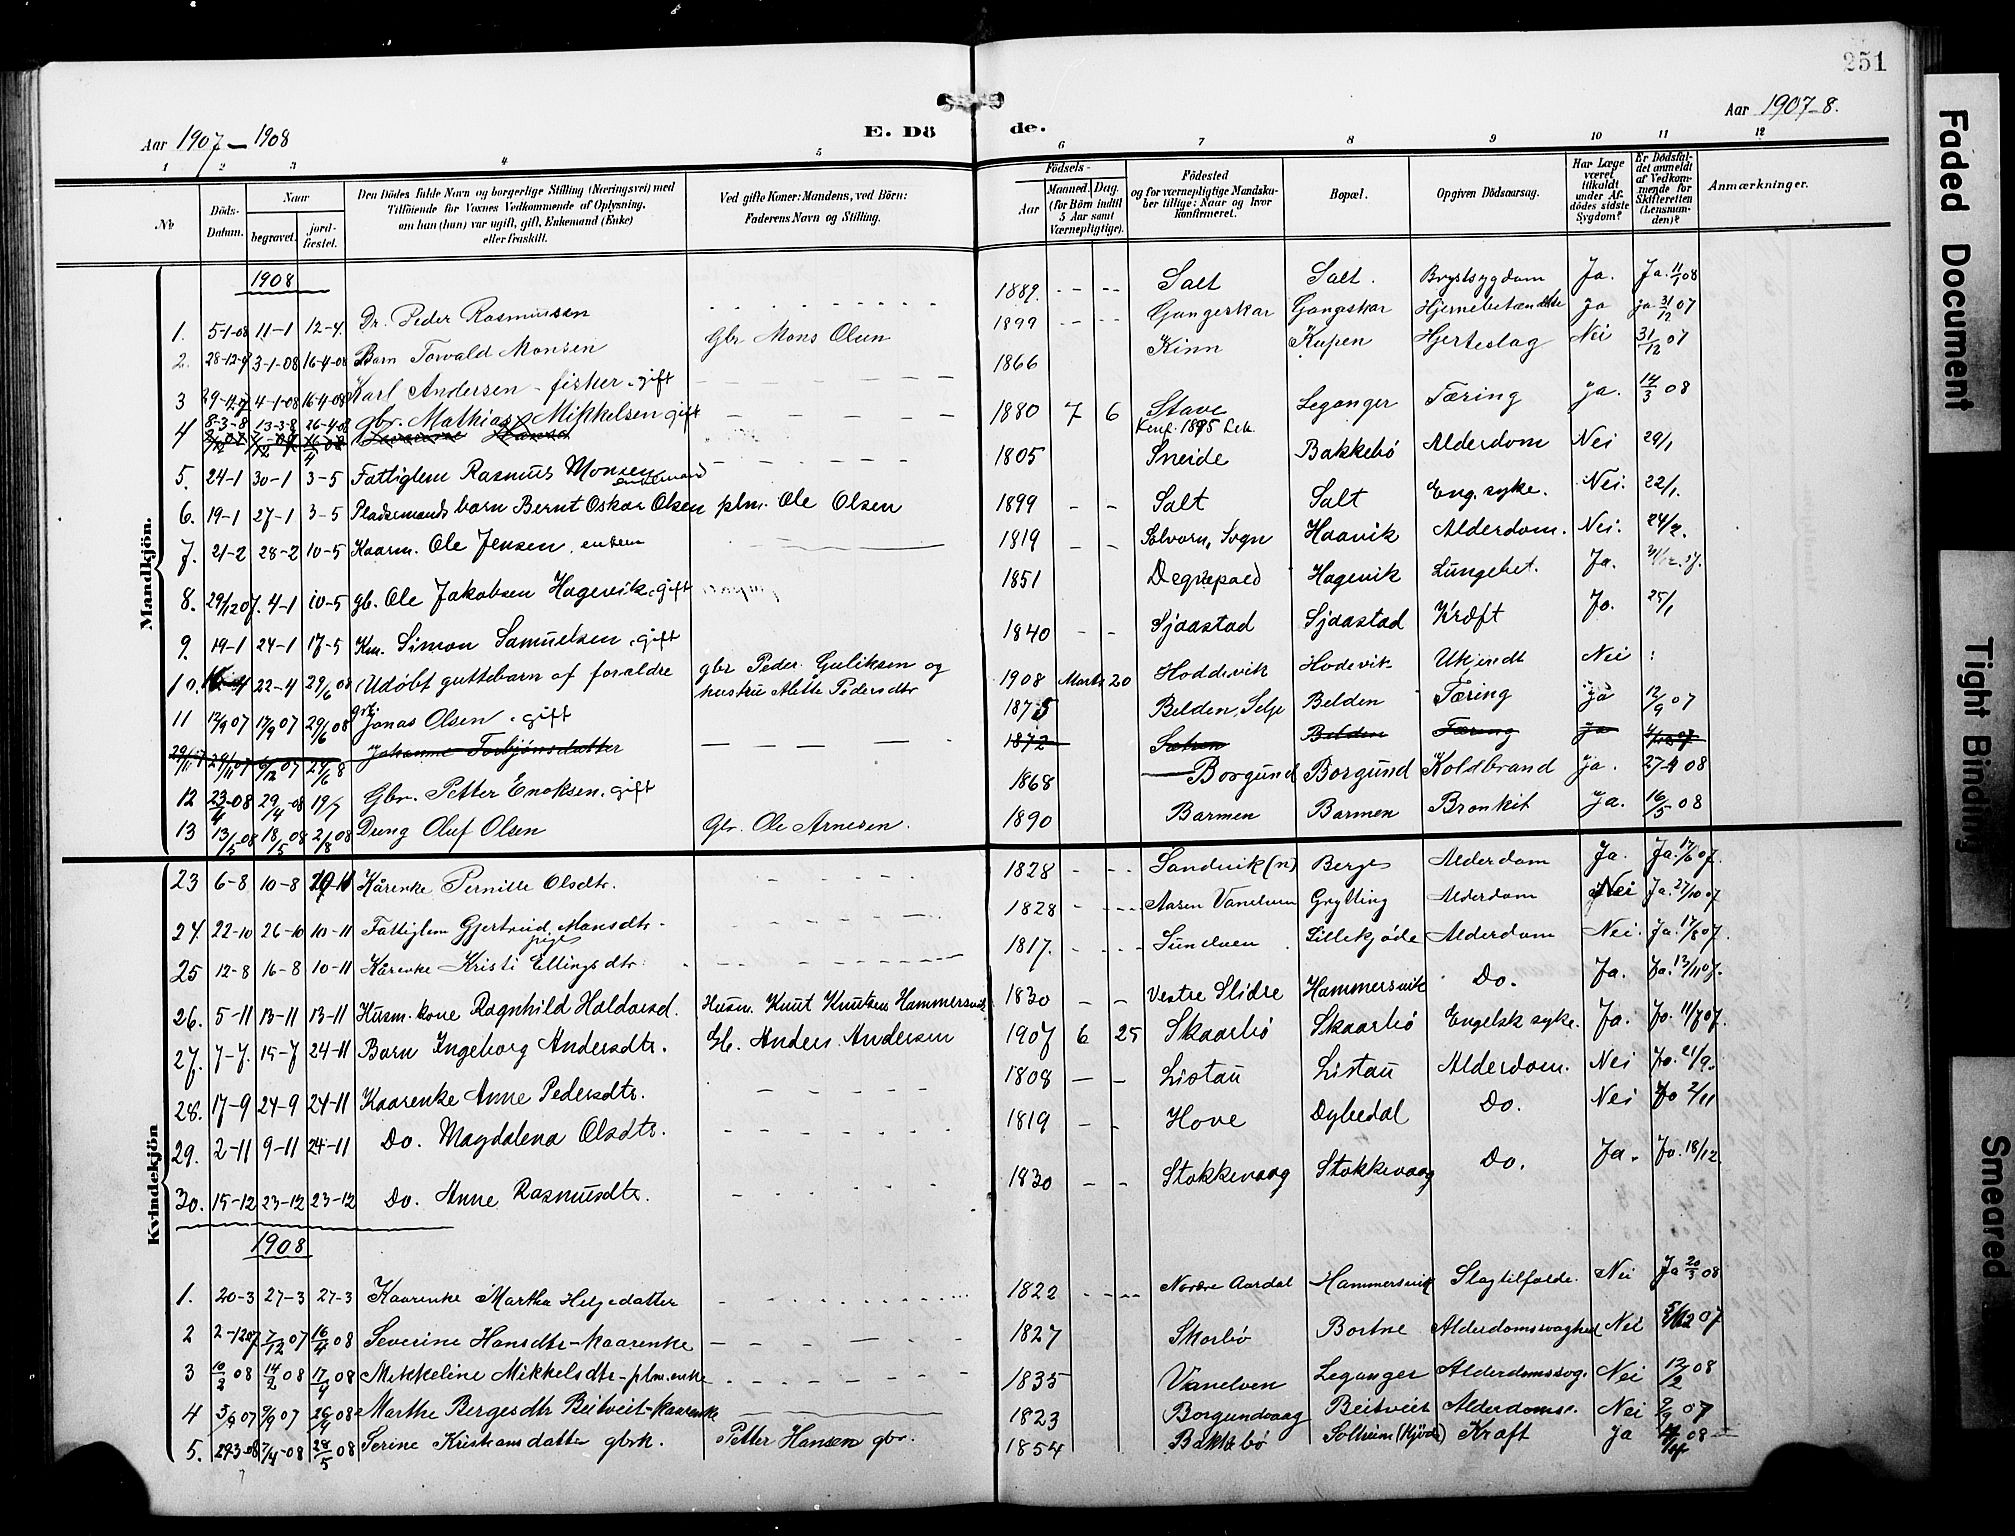 251
Aar 1907 – 1908
E. Dö
de.
Aar 1907–8.
1 2 3 4 5 6 7 8 9 10 11 12
No
Döds-Datum.
Naar
begravet.
jord-fæstet.
Den Dödes fulde Navn og borgerlige Stilling (Næringsvei) med
Tilföiende for Voxnes Vedkommende af Oplysning,
om han (hun) var ugift, gift, Enkemand (Enke)
eller fraskilt.
Ved gifte Koner: Mandens, ved Börn:
Faderens Navn og Stilling.
Födsels-
Aar
Maaned. Dag.
(for Börn indtil
5 Aar samt
Værnepligtige).
Födested
og for værnepligtige Mandska-
ber tillige: Naar og hvor
konfirmeret.
Bopæl.
Opgiven Dödsaarsag.
Har Læge
været
tilkaldt
under Af-
dödes sidste
Sygdom?
Er Dödsfal-
det anmeldt
af Vedkom-
mende for
Skifteretten
(Lensman-
den)?
Anmærkninger.
Mandkjön.
1908
1. 5-1-08 11-1 12-4 Dr. Peder Rasmussen 1889. Salt Salt. Brystsygdom Ja. Ja. 11/1 08
2. 28-12-07 3-1-08 16-4-08 Barn Torvald Monsen Gbr Mons Olsen 1899 Gangeskar Gangskar Hjernebetændelse ja ja 31/12 07
3 29-12-07 4-1-08 16-4-08 Karl Andersen – fisker – gift 1866 Kinn Kupen Hjerteslag Nei 31/12 07
4 8-3-8 13-3-8 26-4-08 gbr. Mathias Mikkelsen gift 1880 7 6 Stave Leganger Tæring ja. 14/3 08
Konf. 1895
5. 24-1 30-1 3-5 Fattiglem Rasmus Monsen enkemand 1805 Sneide Bakkebö Alderdom Nei 29/1
6. 19-1 27-1 3-5 Pladsemands barn Bernt Oskar Olsen plm. Ole Olsen 1899 Salt Salt Eng. syke. Nei. 22/1.
7. 21-2 28-2 10-5 Kaarm. Ole Jensen, enkem 1819 Solvorn, Sogn Haavik Alderdom. Nei. 24/2.
8. 29/12 07. 4-1 10-5 gb. Ole Jakobsen Hagevik, gift 1851 Degnepoed Hagevik Lungebet. Ja.
9. 19-1 24-1 17-5 Km. Simon Samuelsen, gift 1840 Sjaastad Sjaastad Kræft Jo. 25/1
10. 22-4 29/6 08 (Udöbt guttebarn af forældre gbr Peder Guliksen og
hustru Alette Pedersdtr 1908 Marts 20 Hoddevik Hodevik Ukjendt Nei
11 12/9 07 17/9 07 29/6 08 gbr. Jonas Olsen, gift 1875 Belden, Selje Belden Tæring ja 12/9 07
29/11 07 6/12 07 29/6 8 Johanne Torbjönsdatter 1872 Belden Tæring ja
12 23/4-08 29/4-08 19/7 Gbr. Petter Enoksen, gift 1868 Borgund Borgund Koldbrand ja. 27-4 08
13 13/5 08 18/5 08 2/8 08 Dreng Oluf Olsen Gbr. Ole Arnesen. 1890 Barmen Barmen Bronkit Ja. 16/5 08
Kvindekjön
23 6-8 10-8 Kårenke Pernille Olsdtr. 1828 Sandvik (n) Berge Alderdom Ja. Ja.
24. 22-10 26-10 10-11 Fattiglem Gjertrud Monsdtr. pige 1828 Aasen Vanelven Grytting Alderdom Nei Ja. 27/10 07
25 12-8 16-8 10-11 Kårenke Kristi Ellingsdtr. 1817. Sunelven Lillekjøde Alderdom Nei. Ja. 17/8 07.
26. 5-11 13-11 13-11 Husm. kone Ragnhild Haldorsd. Husm. Knut Knutsen Hammersvik 1830 Vestre Slidre Hammersvik Do. Ja. Ja. 13/11 07.
27. 7-7. 15-7 24-11 Barn Ingeborg Andersdtr. Gb. Anders Andersen 1907 6 25 Skaarbö Skaarbö Engelsk syke. Ja. Jo. 11/7 07.
28. 17-9 24-9 24-11 Kaarenke Anne Pedersdtr. 1808 Listau Listau Alderdom. Nei Jo. 21/9.
29. 2-11 9-11 24-11 Do. Magdalena Olsdtr. 1819 Hove Dybedal Do. Nei Jo 2/11
30. 15-12 23-12 23-12 Do. Anne Rasmusdtr. 1830 Stokkevaag Stokkevaag Do. Ja. Jo. 18/12
1908
1. 20-3 27-3 27-3 Kaarenke Martha Helgedatter 1822 Nordre Aardal Hammersvik Slagtilfælde. Nei Ja 20/3 08
2 2-12 07 7/12 07 16/4 08 Severine Hansdtr – kaarenke 1827 Skorbö Bortne Alderdomssvaghed Nei 5/12 07
3 10/2 08 14/2 08 17/4 08 Mikkeline Mikkelsdtr – plm. enke 1835 Vanelven Leganger Alderdomssvag. Nei 12/2 08
4 3/9 07 9/9 07 26/4 08 Marthe Bergesdtr Beitveit – kaarenke 1823 Borgundvaag Beitveit Alderdomss. Nei 9/9 07
5. 27-3-08 7/4-08 28/5 08 Serine Kristiansdatter gbrk. Petter Hansen gbr. 1854 Bakkebö Solheim (Kjöde) Kræft ja 08
Faded Document
Tight Binding
Smeared